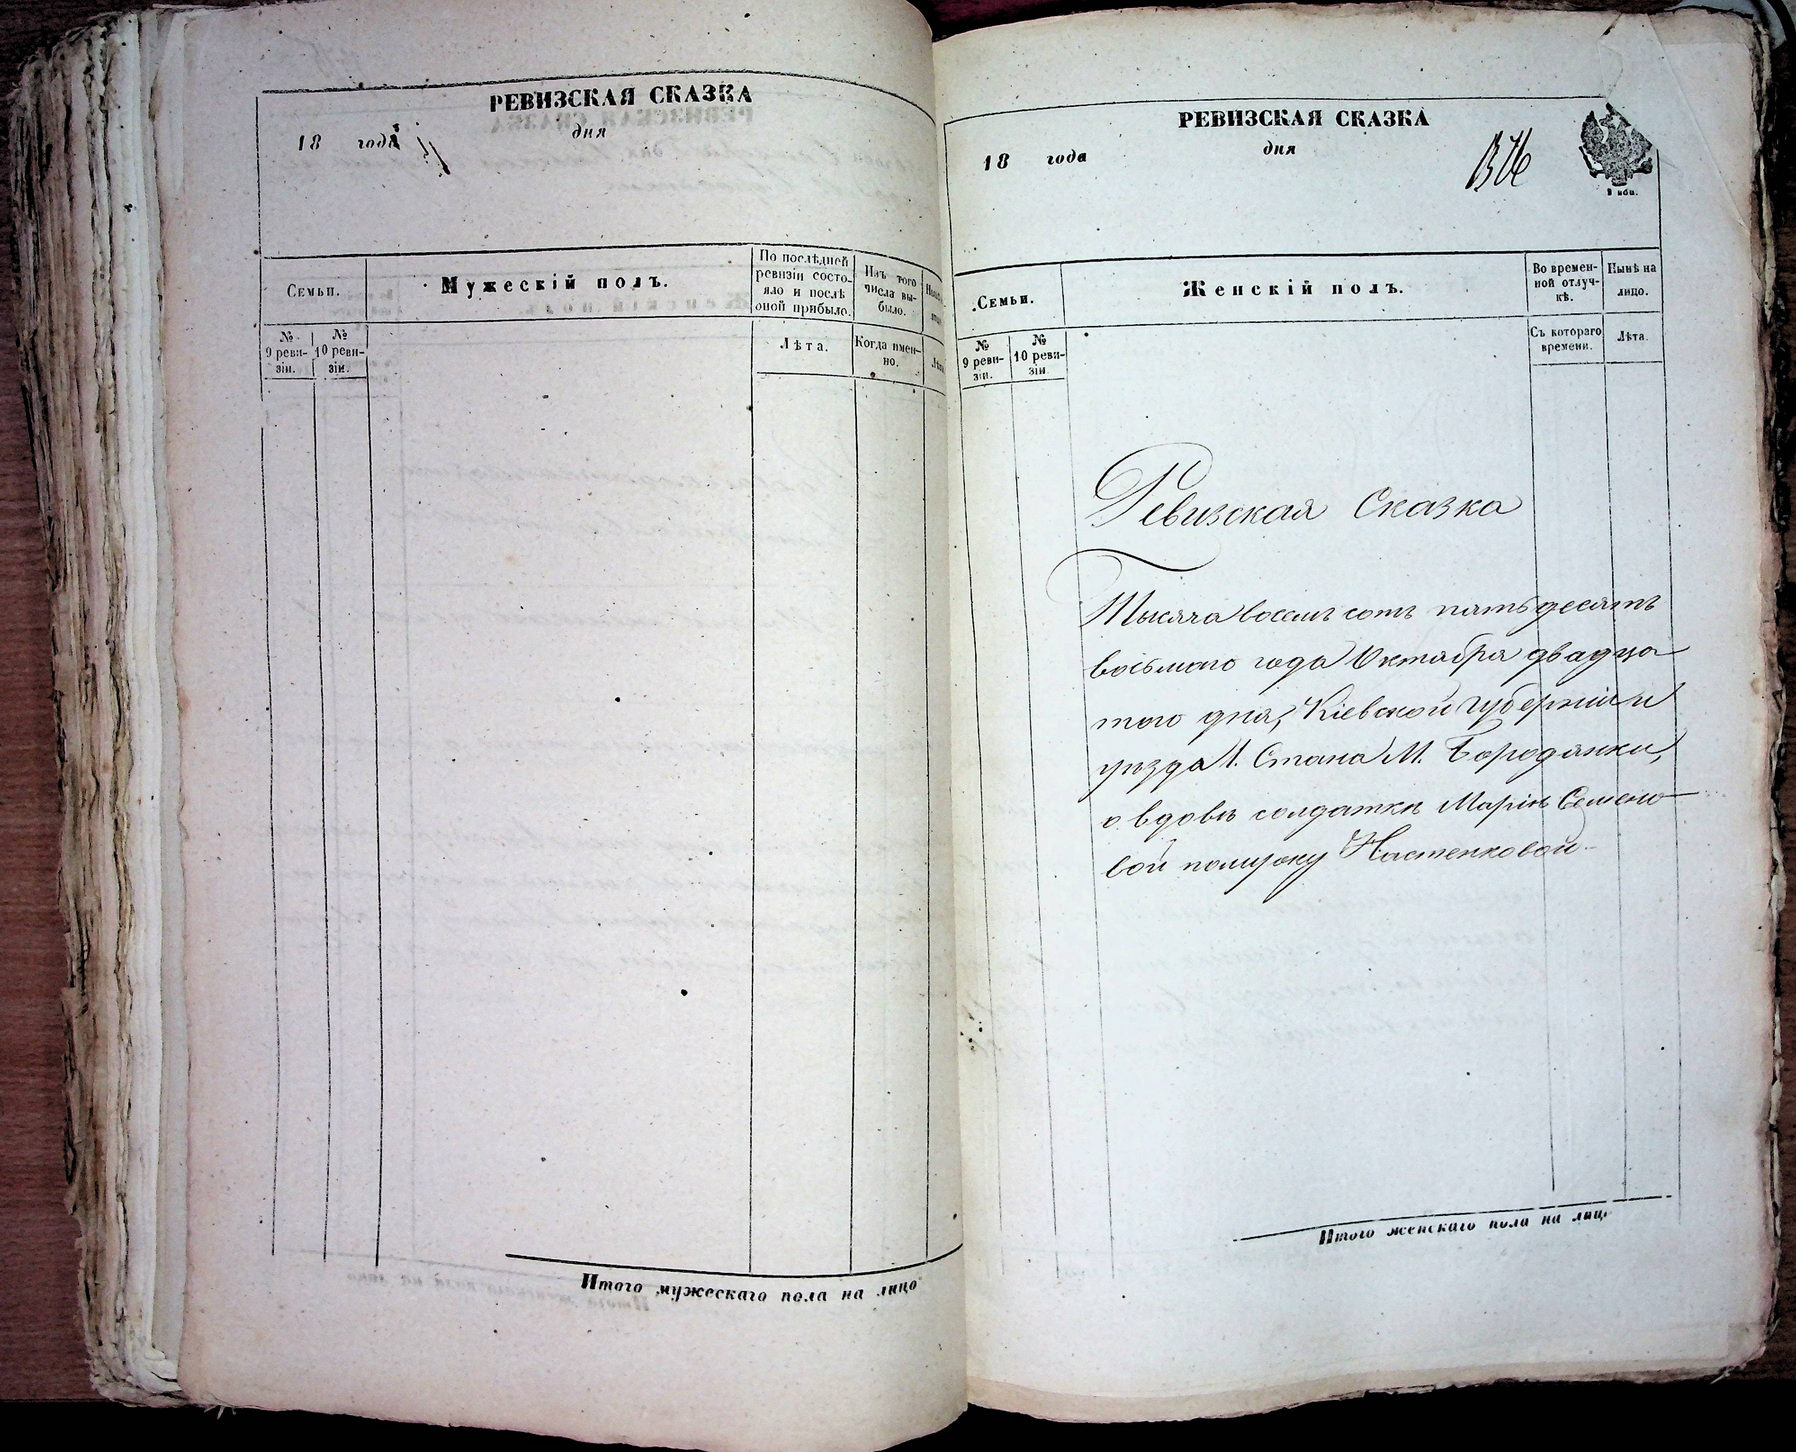 РЕВИЗСКАЯ СКАЗКА
18 года дня
Семьи.
Мужескій полъ.
По послѣдней
ревизіи состо-
яло и послѣ
оной прибыло.
Изъ того
числа вы-
было.
№
9 реви-
зіи.
№
10 реви-
зіи.
Лѣта.
Когда имен-
но.
Итого мужескаго пола на лицо
РЕВИЗСКАЯ СКАЗКА
18 года дня
376
Семьи.
Женскій полъ.
Во времен-
ной отлуч-
кѣ.
Нынѣ на
лицо.
№
9 реви-
зіи.
№
10 реви-
зіи.
Съ котораго
времени.
Лѣта.
Ревизская Сказка
Тысяча восемъ сотъ пятьдесятъ
восьмого года Октября двадца
того дня, Кіевской Губерніи и
уѣзда 1. Стана М. Бородянки,
о вдовѣ солдаткѣ Маріи Семено-
вой по мужу Настенковой
Итого женскаго пола на лицо